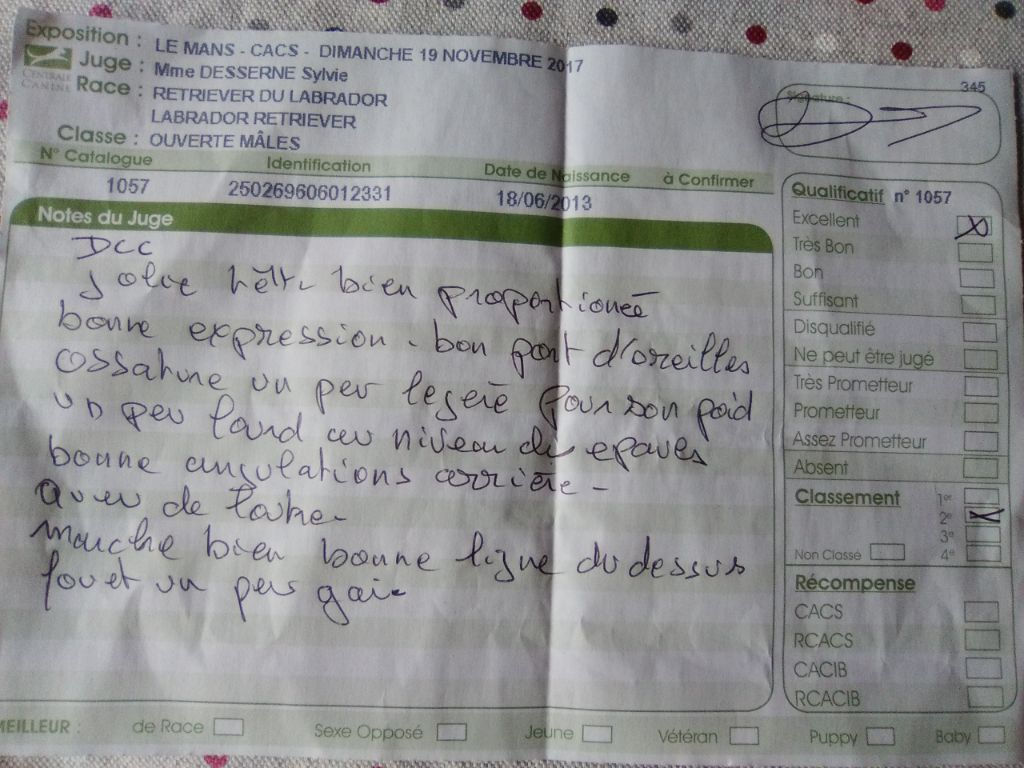 Exposition : LE MANS - CACS - DIMANCHE 19 NOVEMBRE 2017
Juge : Mme DESSERNE Sylvie
CENTRALE CANINE
Race : RETRIEVER DU LABRADOR
LABRADOR RETRIEVER
Classe : OUVERTE MÂLES
345
Signature :
N° Catalogue Identification Date de Naissance à Confirmer
1057 250269606012331 18/06/2013
Notes du Juge
DCC
Jolie bien proportioneé
bonne expression - bon port d'oreilles
ossature un peu legerè pour son poid
un peu lourd au niveau d epaules
bonne angulations arriere -
queu de loutre -
marche bien bonne ligne du dessus
fouet un peu gai -
Qualificatif n° 1057
Excellent X
Très Bon
Bon
Suffisant
Disqualifié
Ne peut être jugé
Très Prometteur
Prometteur
Assez Prometteur
Absent
Classement 1er
2e X
3e
Non Classé 4e
Récompense
CACS
RCACS
CACIB
RCACIB
MEILLEUR : de Race Sexe Opposé Jeune Vétéran Puppy Baby